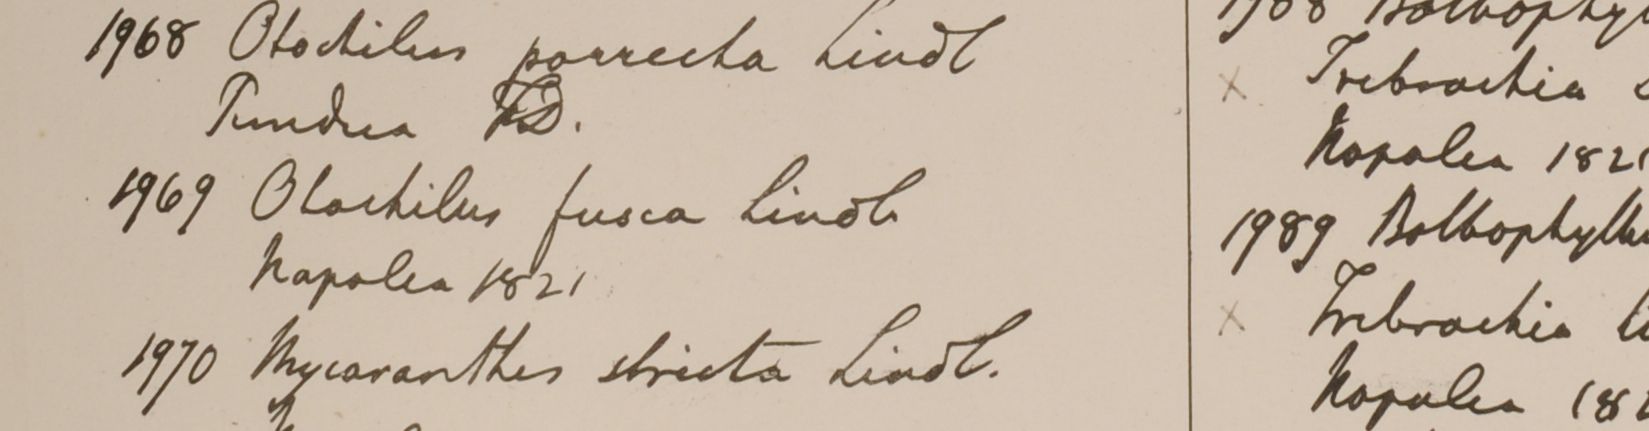 1968 Otochilus porrecta Lindl
Tundua F.D.
1969 Otochilus fusca Lindl.
Napalea 1821
1970 Mycaranthes stricta Lindl.
Trebrachia
Napalea 182
1989 Bolbophyllu
Trebrachia
Napalea 18